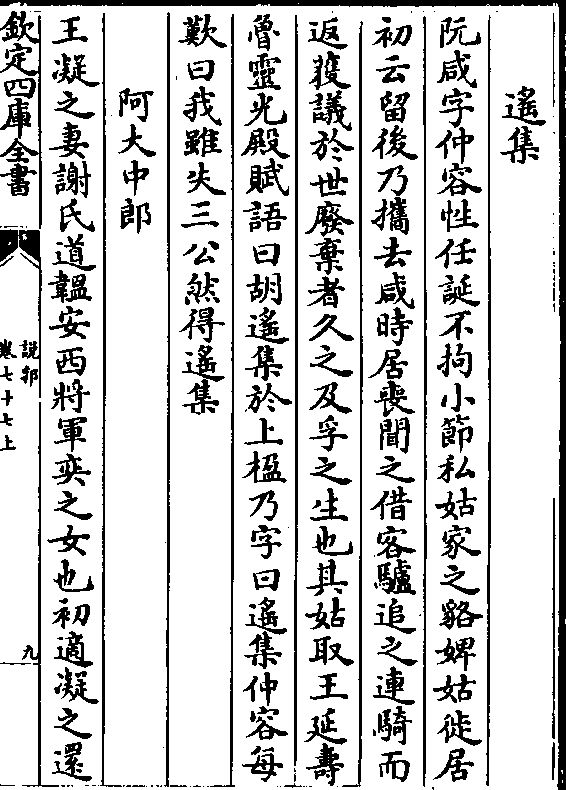 遙集
阮咸字仲容性任誕不拘小節私姑家之貉婢姑徙居
初云留後乃攜去咸時居喪聞之借客驢追之連騎而
返獲議於世廢棄者久之及孚之生也其姑取王延壽
魯靈光殿賦語曰胡遙集於上楹乃字曰遙集仲容每
歎曰我雖失三公然得遙集
阿大中郎
王凝之妻謝氏道韞安西將軍奕之女也初適凝之還
欽定四庫全書
說郛
卷七十七上
九